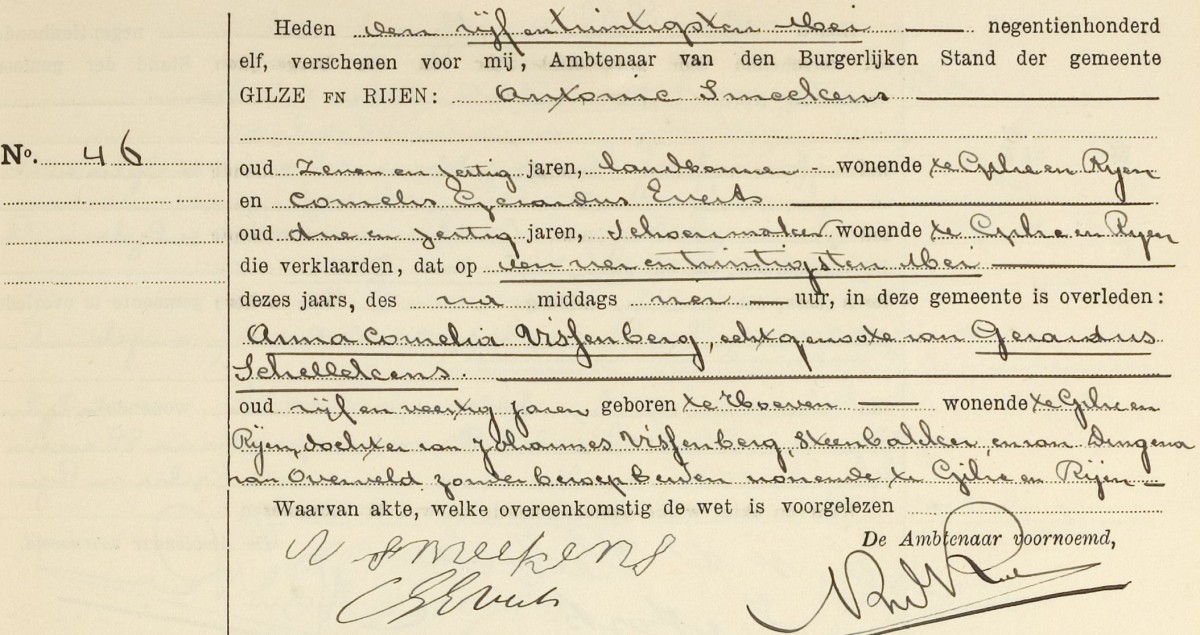 Heden den vijfentwintigsten Mei negentienhonderd
elf, verschenen voor mij, Ambtenaar van den Burgerlijken Stand der gemeente
GILZE EN RIJEN: Antonie Smeekens
No. 46
oud zeven en zestig jaren, landbouwer wonende te Gilze en Rijen
en Cornelis Gerardus Everts
oud drie en zestig jaren, schoenmaker wonende te Gilze en Rijen
die verklaarden, dat op den vier en twintigsten Mei
dezes jaars, des na middags vier uur, in deze gemeente is overleden:
Anna Cornelia Vissenberg, echtgenoote van Gerardus
Schellekens
oud vijf en veertig jaren geboren te Hoeven wonende te Gilze en
Rijen, dochter van Johannes Vissenberg, steenbakker, en van Dingena
van Overveld zonder beroep beiden wonende te Gilze en Rijen
Waarvan akte, welke overeenkomstig de wet is voorgelezen
De Ambtenaar voornoemd,
A Smeekens
CGEverts